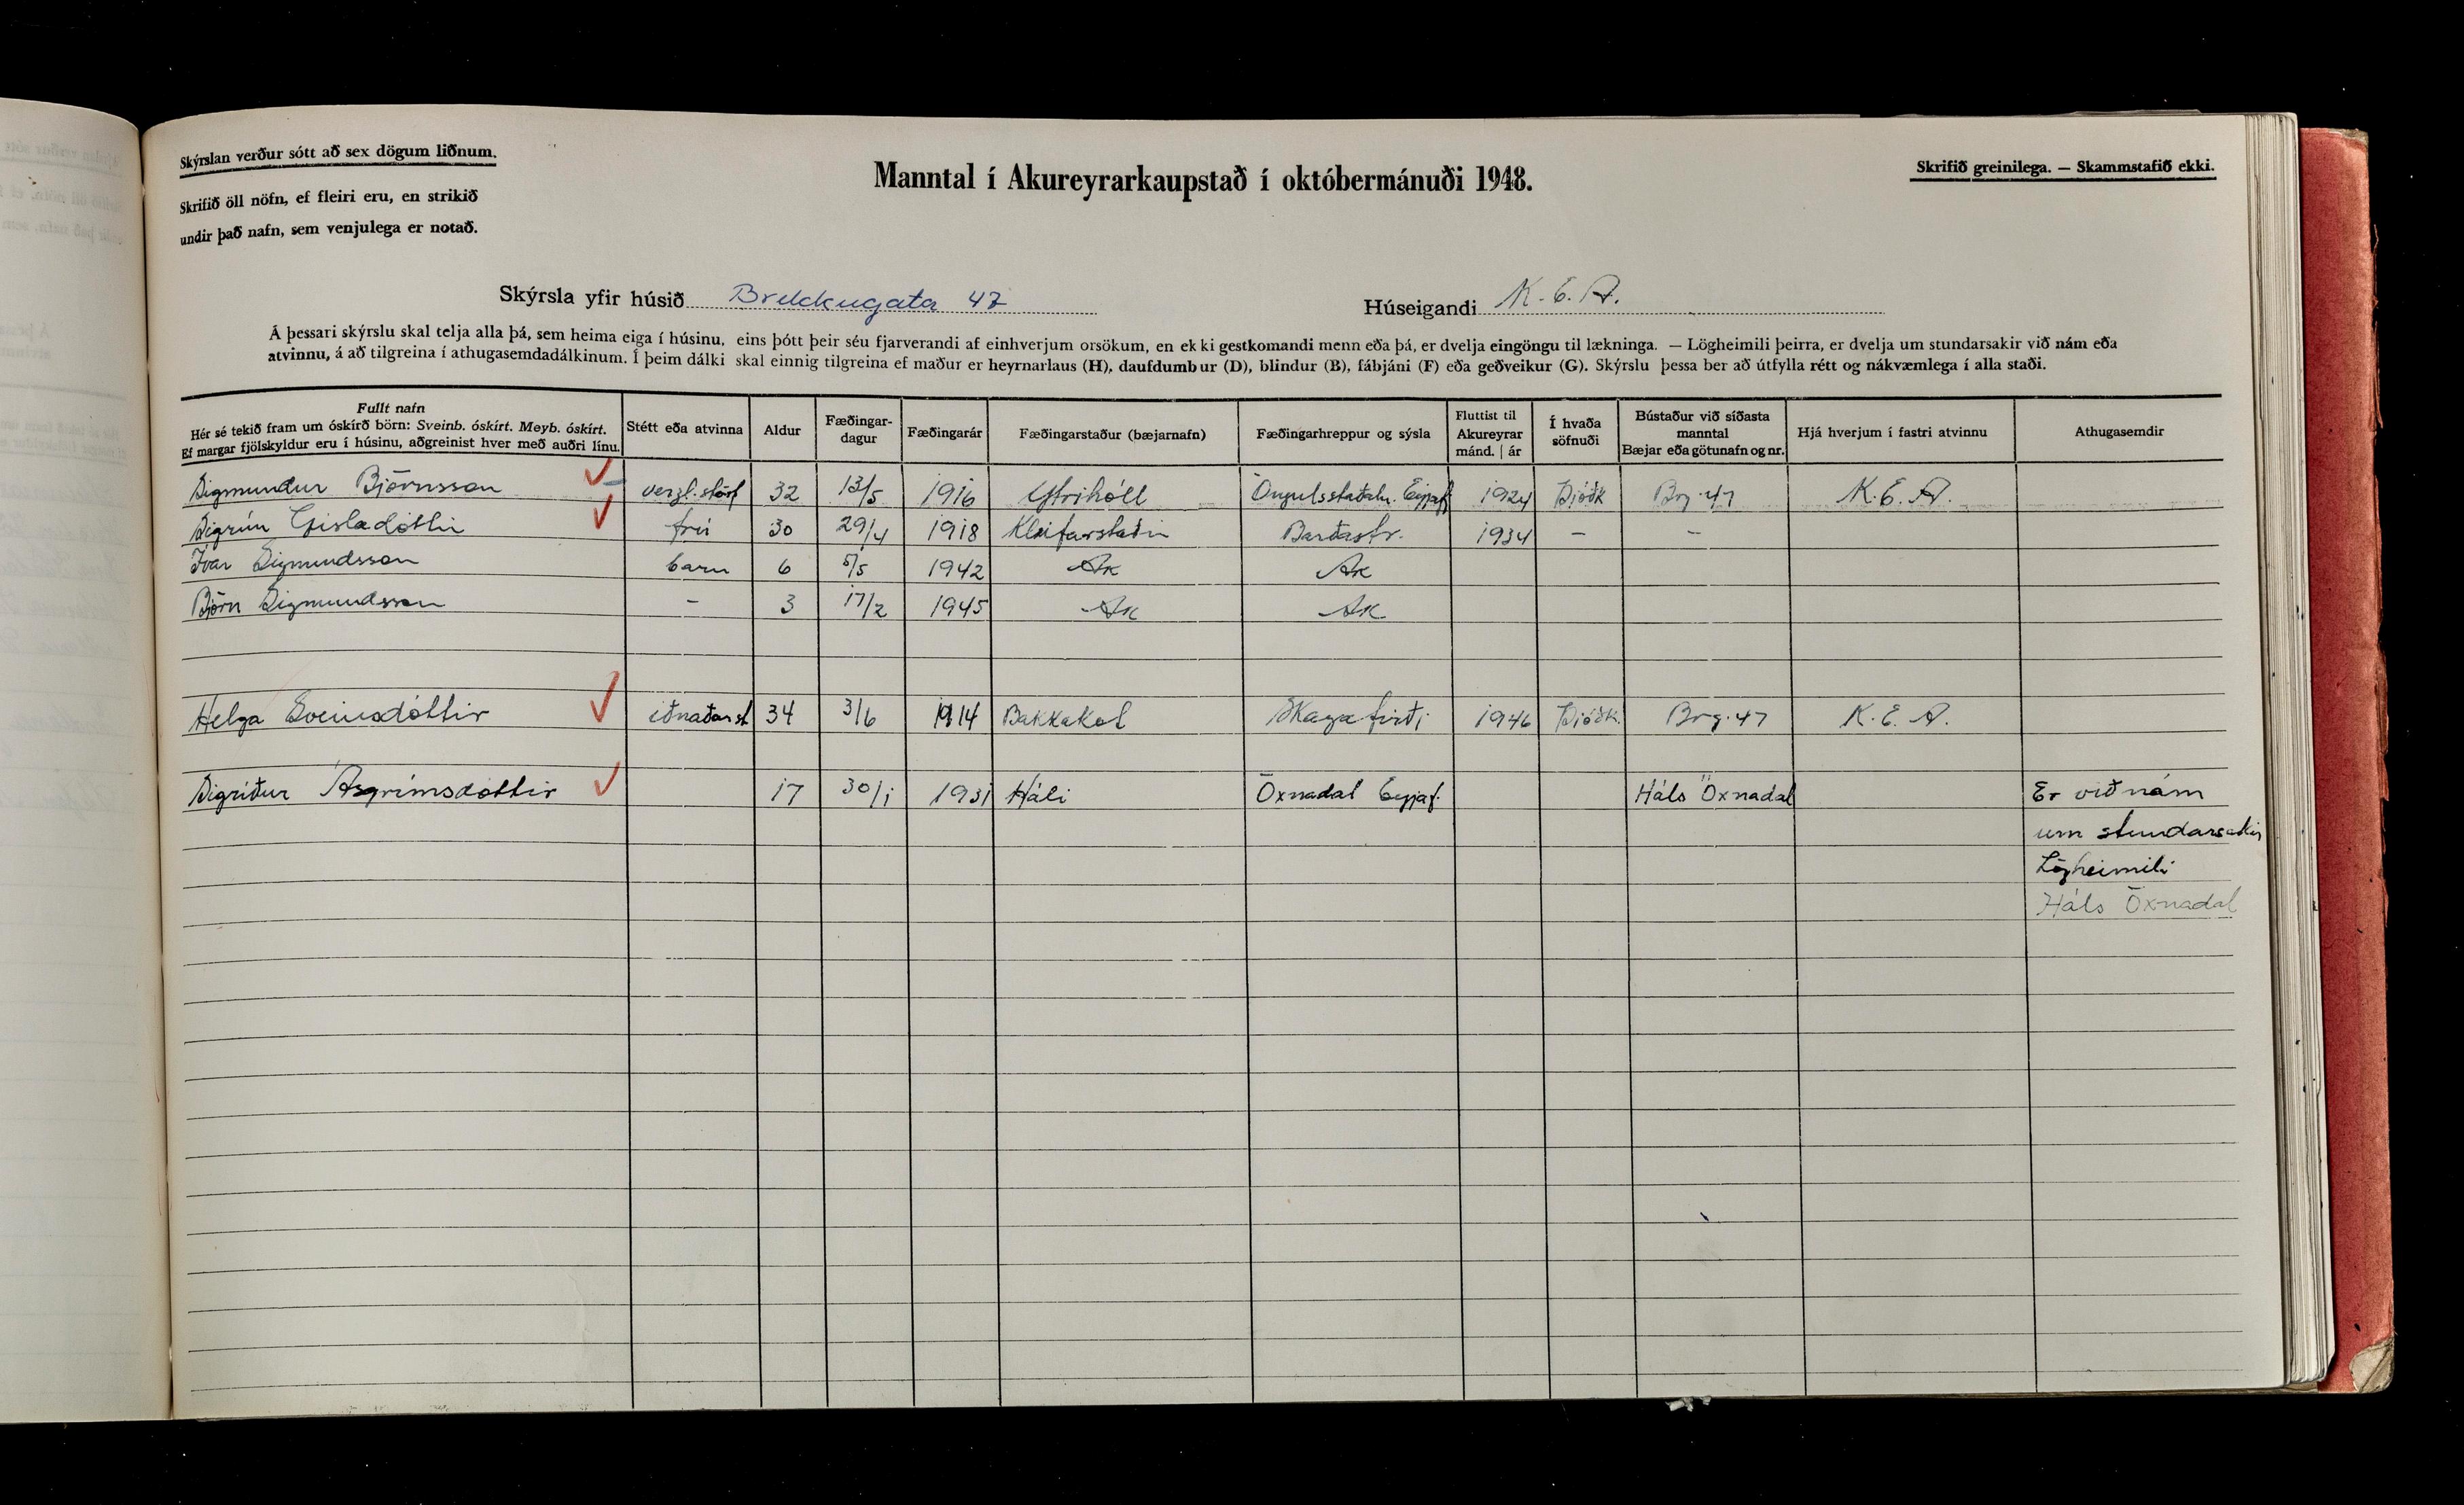 Skýrslan verður sótt að sex dögum liðnum.
Skrifið öll nöfn, ef fleiri eru, en strikið
undir það nafn, sem venjulega er notað.
Manntal í Akureyrarkaupstað í októbermánuði 1948.
Skrifið greinilega. — Skammstafið ekki.
Skýrsla yfir húsið Brekkugata 47
Húseigandi K. E. A.
Á þessari skýrslu skal telja alla þá, sem heima eiga í húsinu, eins þótt þeir séu fjarverandi af einhverjum orsökum, en ekki gestkomandi menn eða þá, er dvelja eingöngu til lækninga. — Lögheimili þeirra, er dvelja um stundarsakir við nám eða
atvinnu, á að tilgreina í athugasemdadálkinum. Í þeim dálki skal einnig tilgreina ef maður er heyrnarlaus (H), daufdumbur (D), blindur (B), fábjáni (F) eða geðveikur (G). Skýrslu þessa ber að útfylla rétt og nákvæmlega í alla staði.
Fullt nafn
Hér sé tekið fram um óskírð börn: Sveinb. óskírt. Meyb. óskírt.
Ef margar fjölskyldur eru í húsinu, aðgreinist hver með auðri línu.
Stétt eða atvinna
Aldur
Fæðingar-
dagur
Fæðingarár
Fæðingarstaður (bæjarnafn)
Fæðingarhreppur og sýsla
Fluttist til
Akureyrar
mánd. | ár
Í hvaða
söfnuði
Bústaður við síðasta
manntal
Bæjar eða götunafn og nr.
Hjá hverjum í fastri atvinnu
Athugasemdir
Sigmundur Björnsson verzl.störf 32 13/5 1916 Ytrihóll Öngulsstaðahr. Eyjaf 1924 Þjóðk Brg. 47 K. E. A.
Sigrún Gísladóttir frú 30 29/4 1918 Kleifarstaðir Barðastr. 1934 – –
Ívar Sigmundsson barn 6 5/5 1942 Ak Ak
Björn Sigmundsson – 3 17/2 1945 Ak Ak
Helga Sveinsdóttir iðnaðarst 34 3/6 1914 Bakkakot Skagafirði 1946 Þjóðk. Brg. 47 K. E. A.
Sigríður Ásgrímsdóttir 17 30/1 1931 Háli Öxnadal Eyjaf. Háls Öxnadal Er við nám
um stundarsakir
Lögheimili
Háls Öxnadal